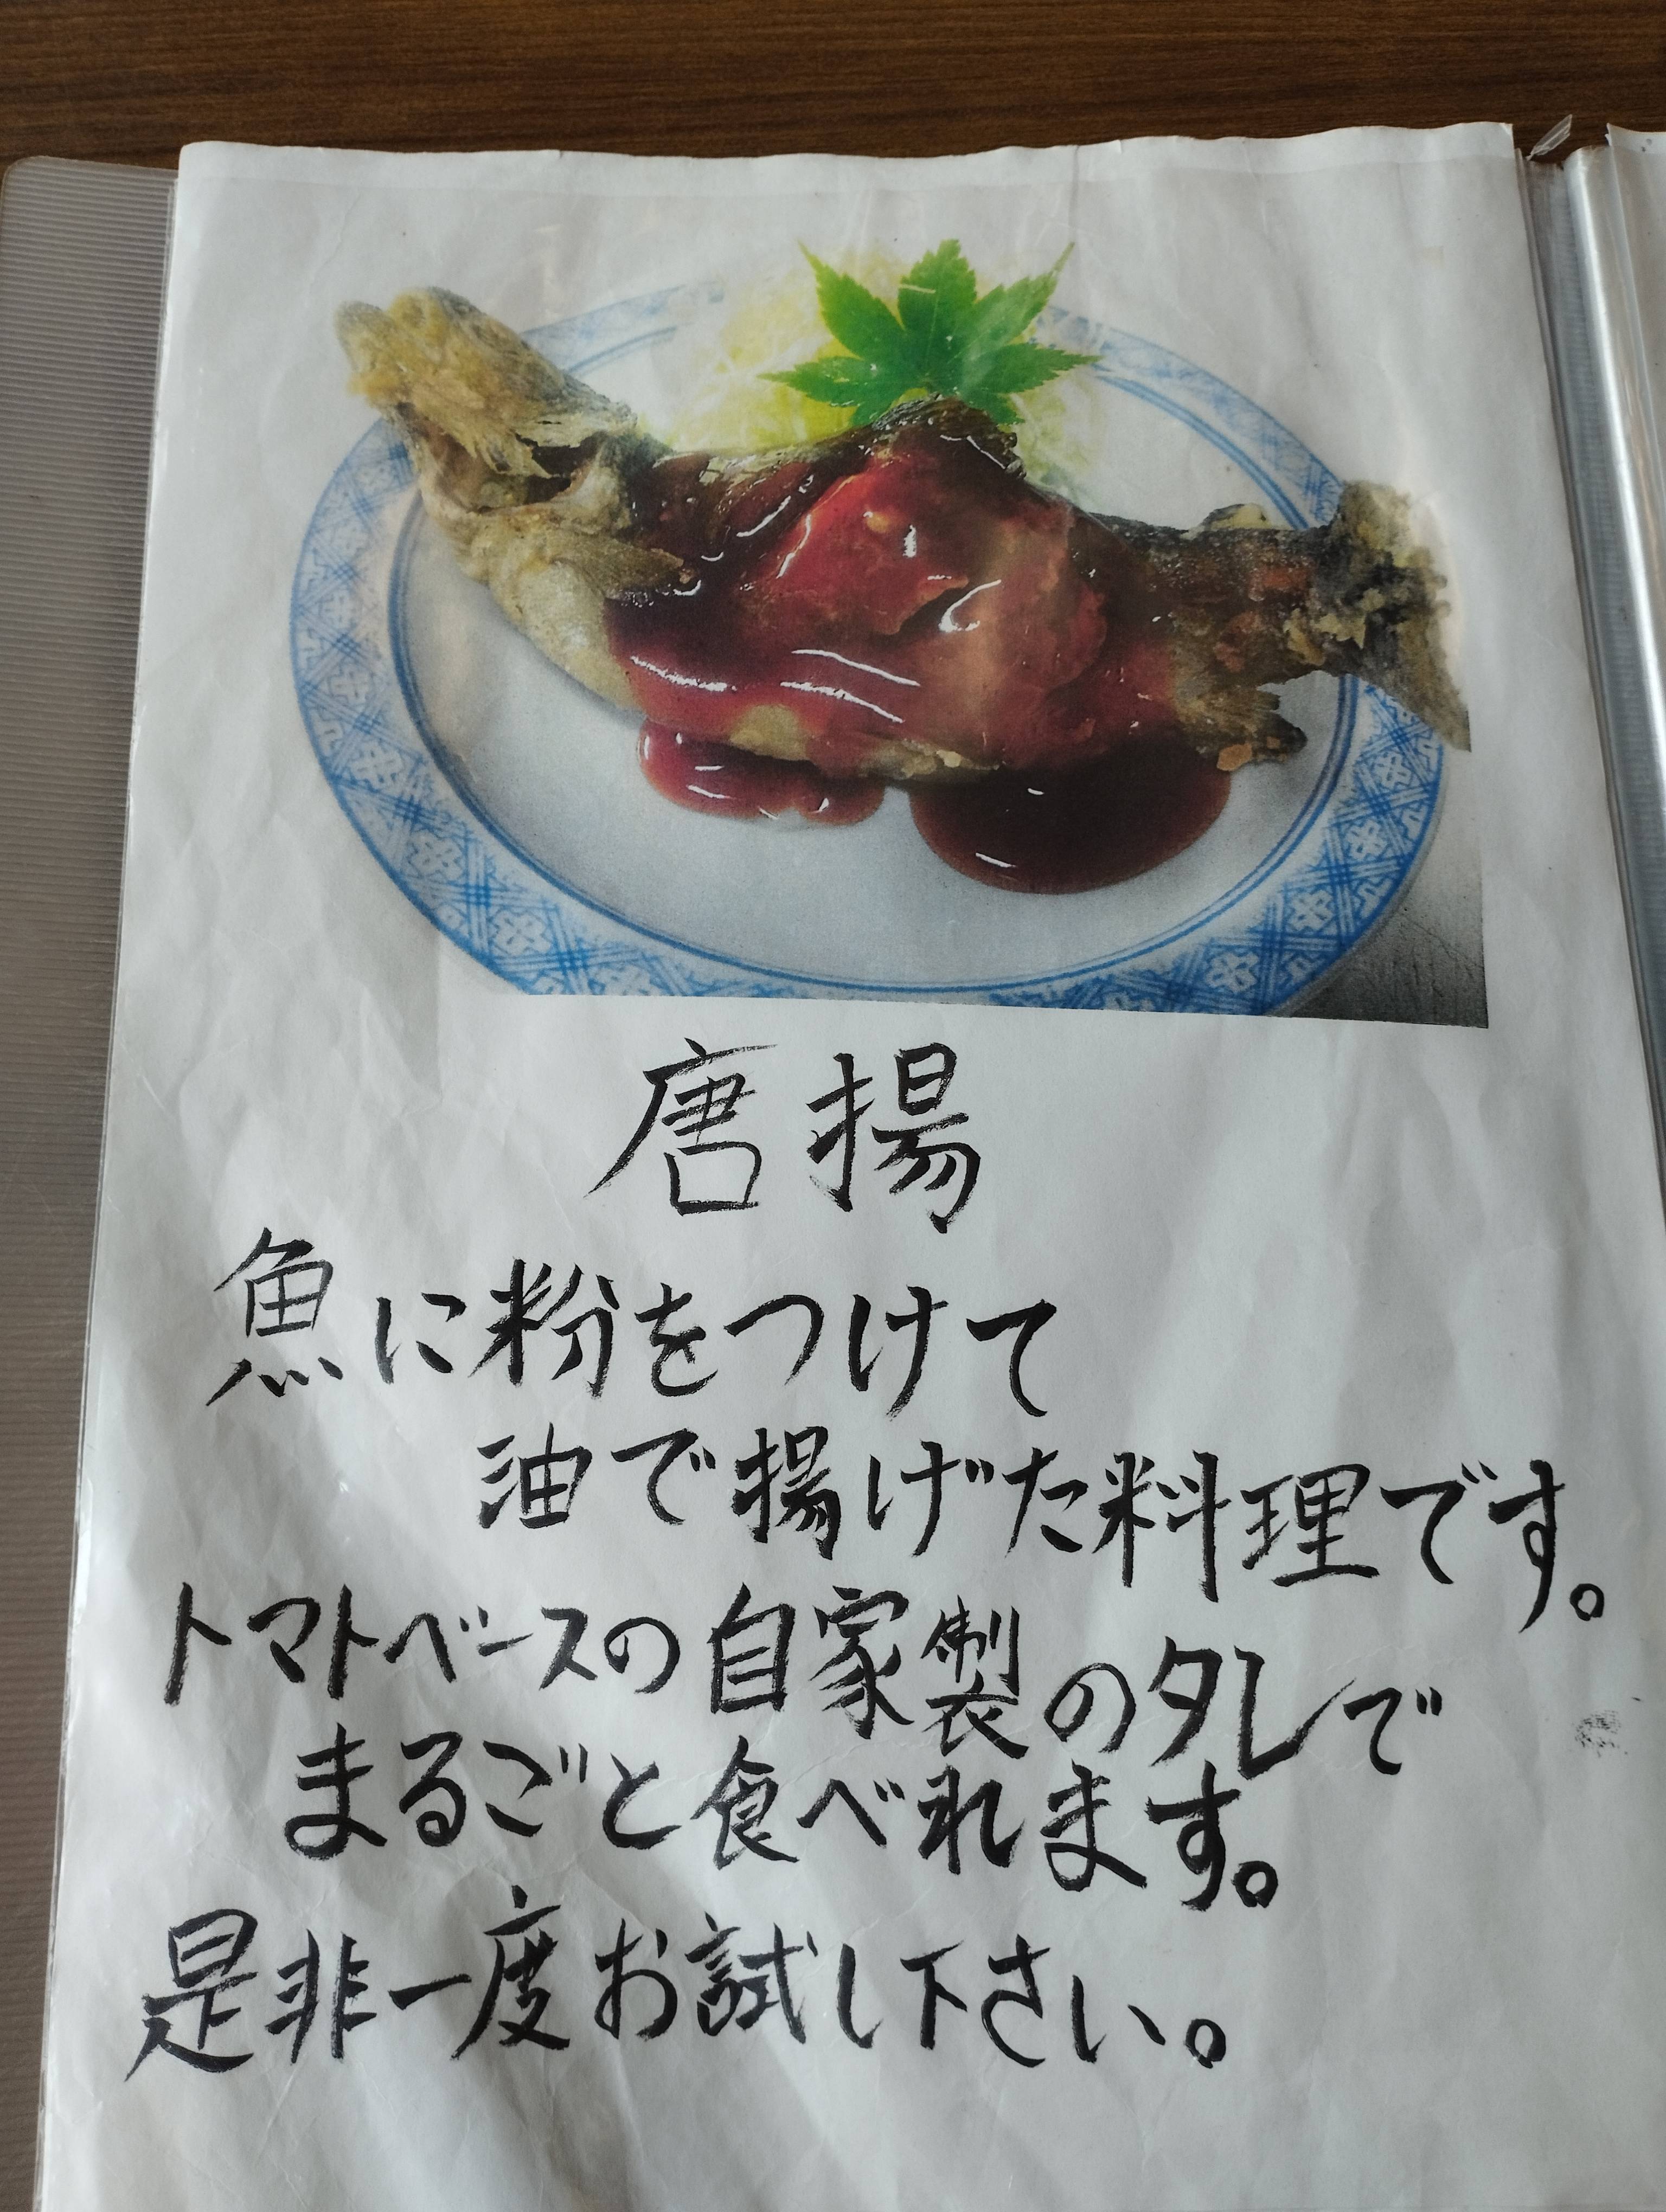 唐揚
魚に粉をつけて
油で揚げた料理です。
トマトベースの自家製のタレで
まるごと食べれます。
是非一度お試し下さい。